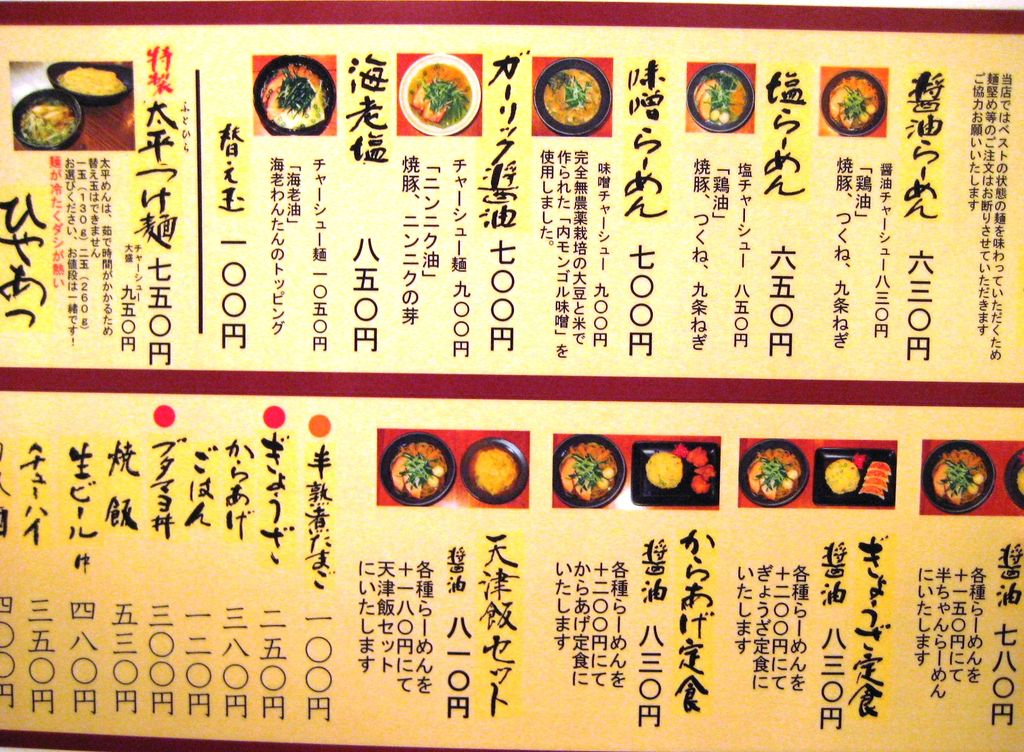 当店ではベストの状態の麺を味わっていただくため
麺堅め等のご注文はお断りさせていただきます
ご協力お願いいたします
醤油らーめん 六三〇円
醤油チャーシュー 八三〇円
「鶏油」
焼豚、つくね、九条ねぎ
塩らーめん 六五〇円
塩チャーシュー 八五〇円
「鶏油」
焼豚、つくね、九条ねぎ
味噌らーめん 七〇〇円
味噌チャーシュー 九〇〇円
完全無農薬栽培の大豆と米で
作られた「内モンゴル味噌」を
使用しました。
ガーリック醤油 七〇〇円
チャーシュー麺 九〇〇円
「ニンニク油」
焼豚、ニンニクの芽
海老塩 八五〇円
チャーシュー麺 一〇五〇円
「海老油」
海老わんたんのトッピング
替え玉 一〇〇円
特製 太平つけ麺 七五〇円
ふとひら
チャーシュー 九五〇円
大盛
太平めんは、茹で時間がかかるため
替え玉はできません
一玉(130g)二玉(260g)
お選びください。お値段は一緒です!
麺が冷たくダシが熱い
ひやあつ
醤油 七八〇円
各種らーめんを
+一五〇円にて
半ちゃんらーめん
にいたします
ぎょうざ定食
醤油 八三〇円
各種らーめんを
+二〇〇円にて
ぎょうざ定食に
いたします
からあげ定食
醤油 八三〇円
各種らーめんを
+二〇〇円にて
からあげ定食に
いたします
天津飯セット
醤油 八一〇円
各種らーめんを
+一八〇円にて
天津飯セット
にいたします
半熟煮たまご 一〇〇円
ぎょうざ 二五〇円
からあげ 三八〇円
ごはん 一二〇円
ブタマヨ丼 三〇〇円
焼飯 五三〇円
生ビール中 四八〇円
チューハイ 三五〇円
四〇〇円